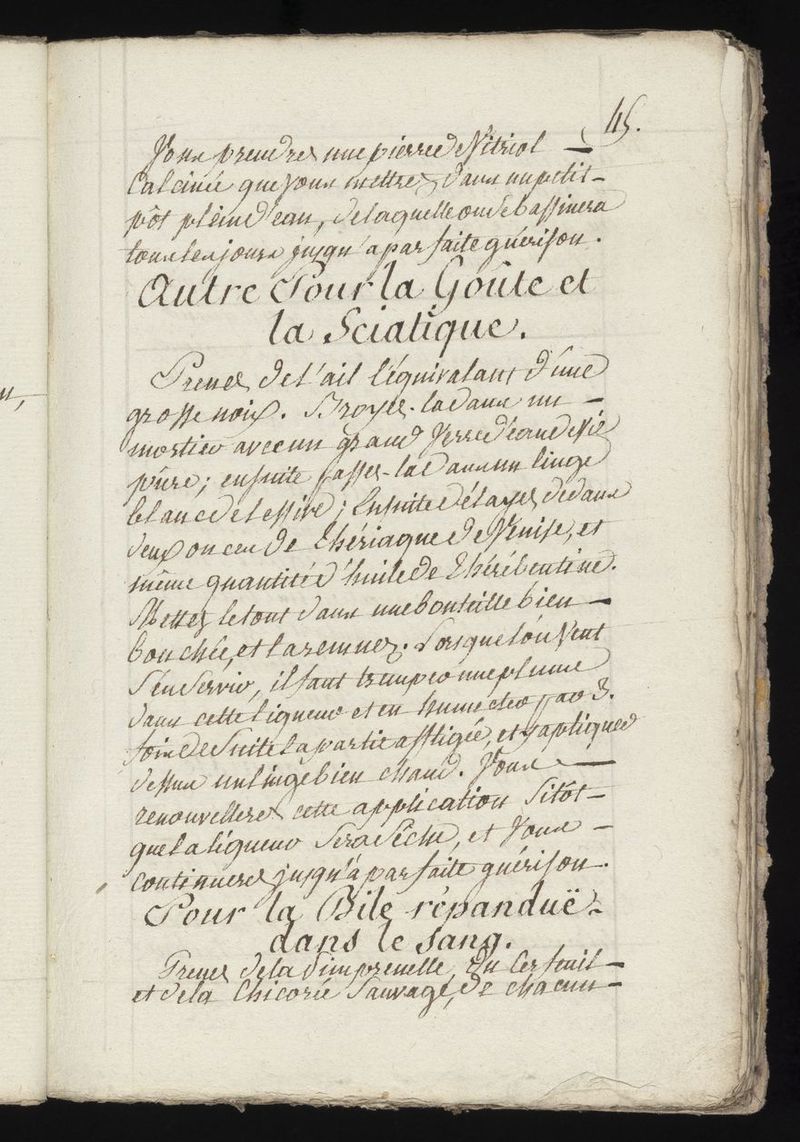 45.
Vous prendrez une pierre de Vitriol
Calcinée que vous mettrez dans un petit
pôt plein d'eau, de laquelle on se bassinera
tous les jours jusqu'à parfaite guérison.
Autre Pour la Goûte et
la Sciatique.
Prenez de l'ail l'équivalant d'une
grosse noix. Broyez-la dans un
mortier avec un grand Verre d'eau de vie
pûre; ensuite passez-la dans un linge
blanc de lessive; Ensuite délayez dedans
deux onces de Thériaque de Venise, et
même quantité d'huile de Thérébentine.
Mettez le tout dans une bouteille bien
bouchée, et la remuez. Lorsque l'on Veut
s'en servir, il faut tremper une plume
dans cette liqueur et en humecter par 3.
fois de suite la partie affligée, et y apliquer
dessus un linge bien chaud. Vous
renouvellerez cette application Sitôt
que la liqueur Sera Sêche, et Vous
continuerez jusqu'à parfaite guérison.
Pour la Bile répanduë
dans le Sang.
Prenez de la Pimprenelle, du Cerfeuil
et de la Chicorée Sauvage, de chacun